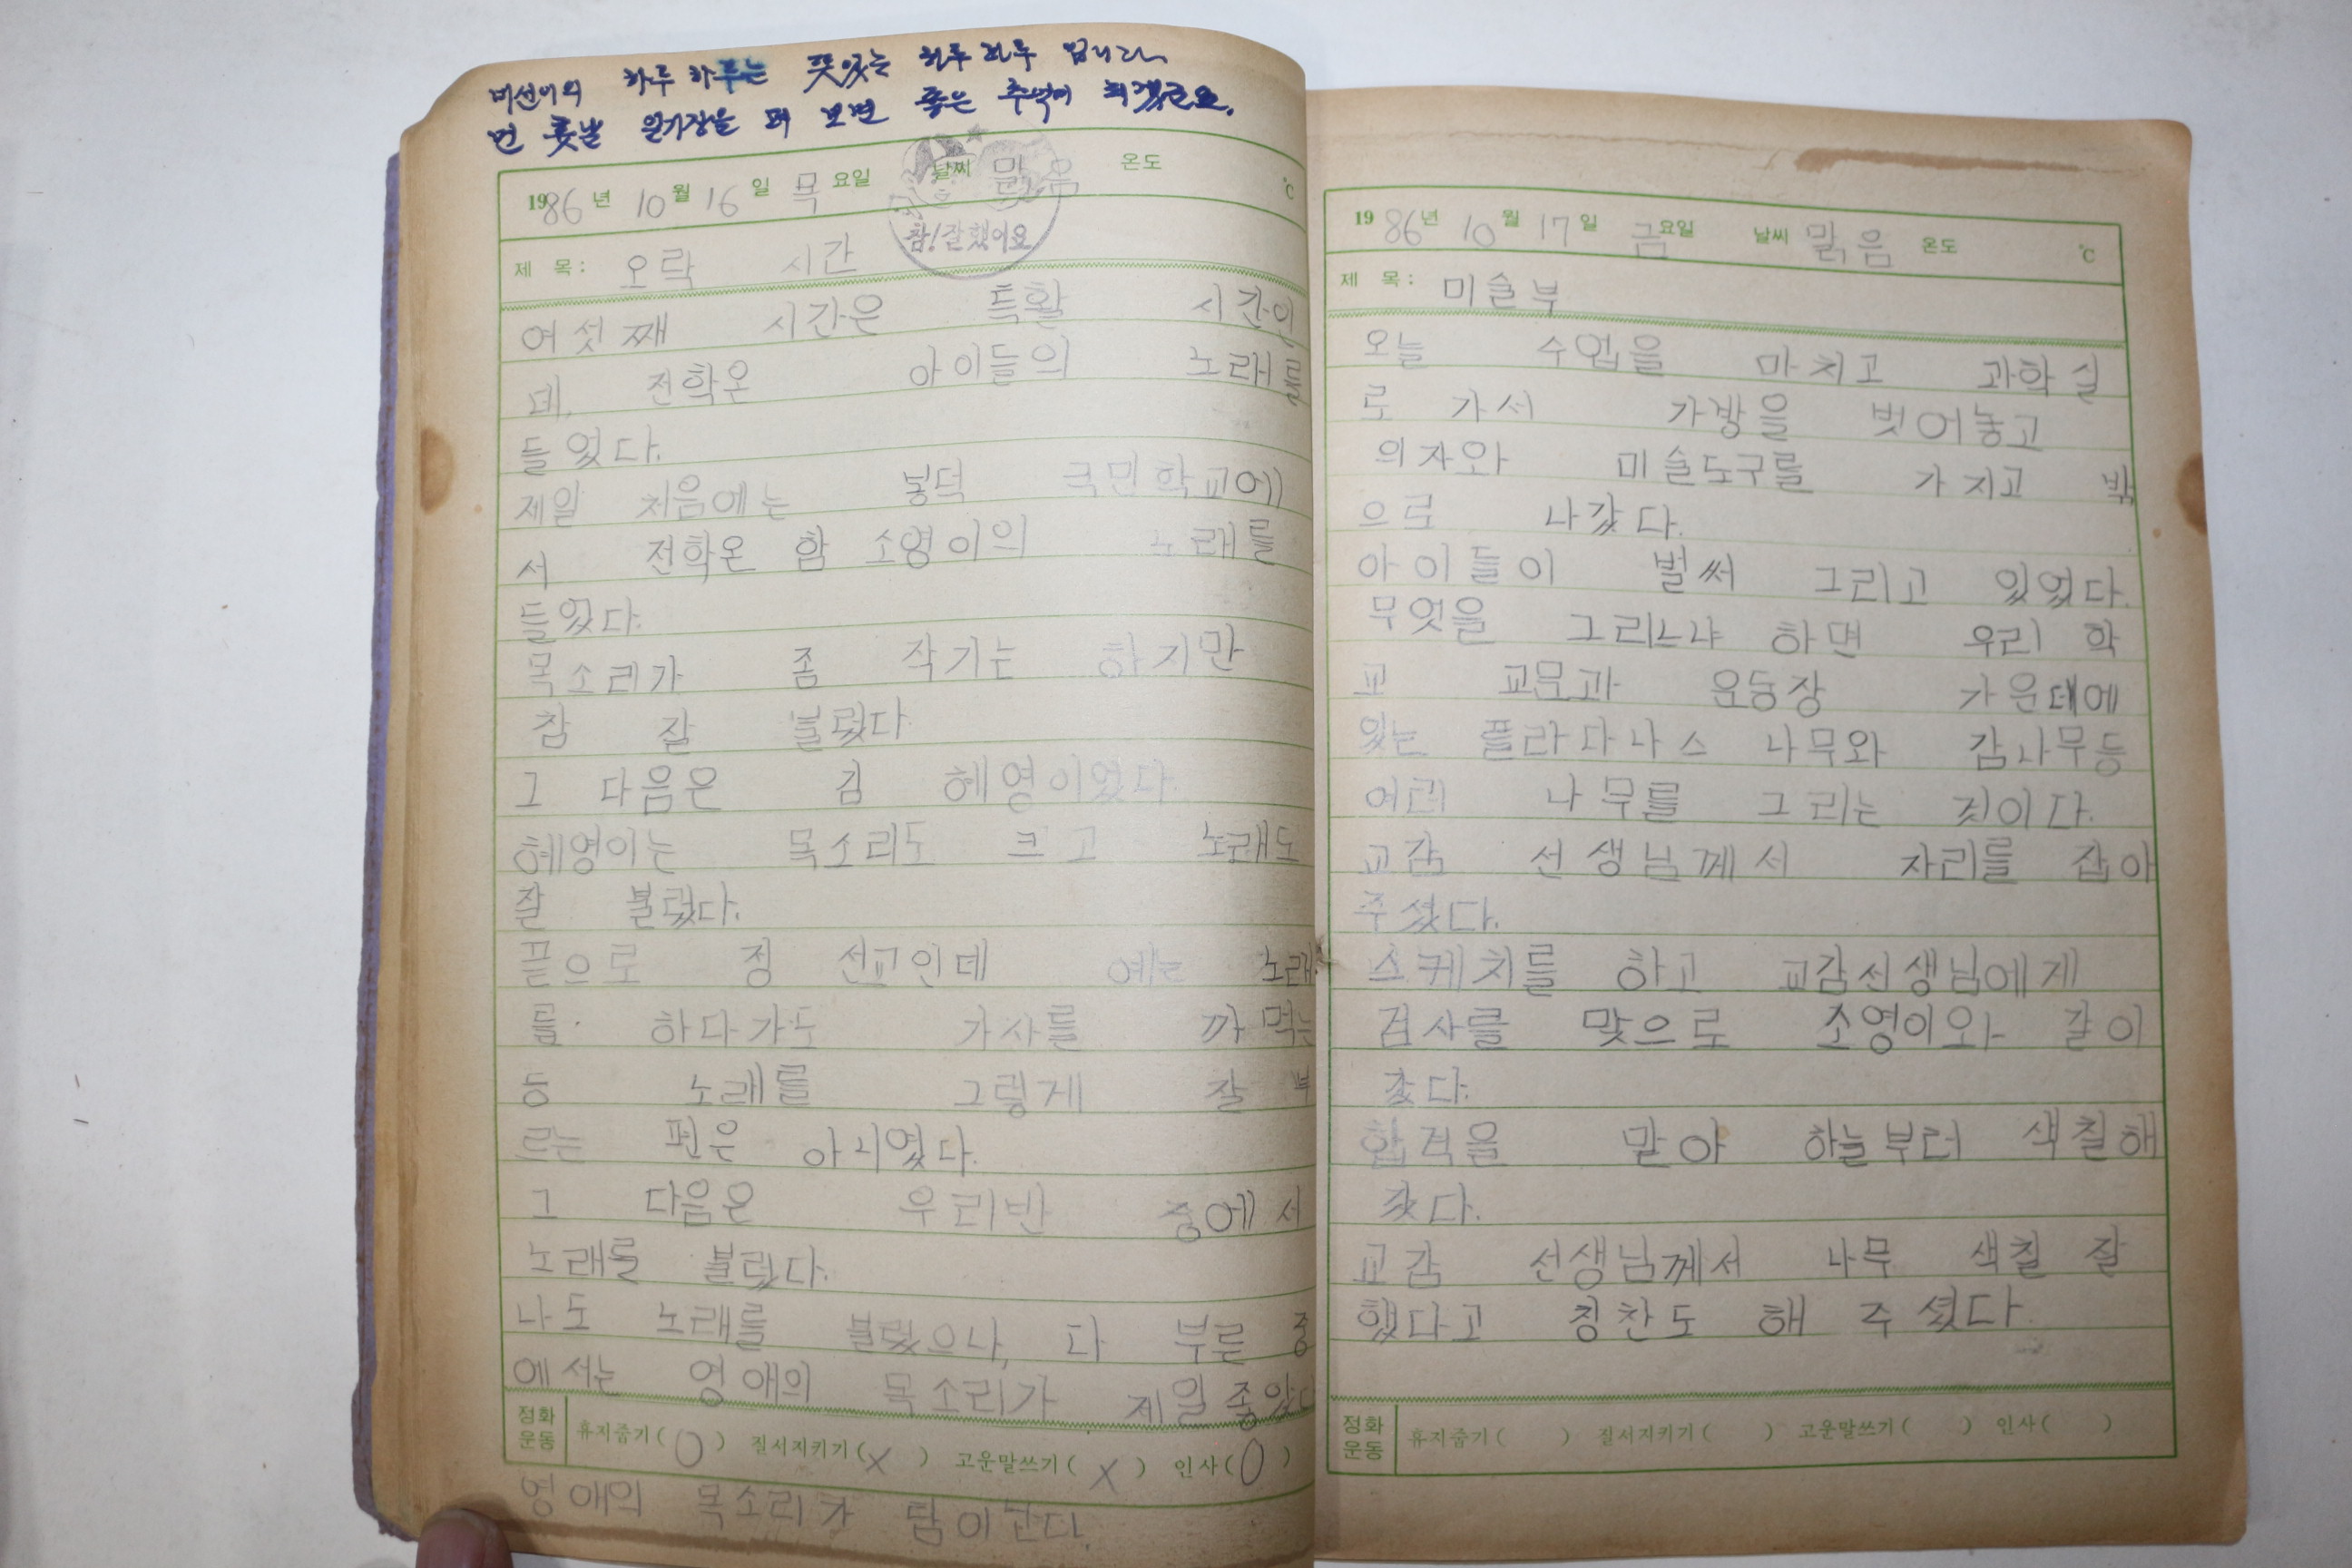 미선이의 하루 하루는 뜻있는 하루 하루 입니다.
먼 훗날 일기장을 펴 보면 좋은 추억이 되겠군요.
1986년 10월 16일 목요일 날씨 맑음 온도 ℃
참! 잘했어요
제 목: 오락 시간
여섯째 시간은 특활 시간인
데, 전학온 아이들의 노래를
들었다.
제일 처음에는 봉덕 국민학교에
서 전학온 함 소영이의 노래를
들었다.
목소리가 좀 작기는 하지만
참 잘 불렀다
그 다음은 김 혜영이었다.
혜영이는 목소리도 크고 노래도
잘 불렀다.
끝으로 정 선교인데 얘는 노래
를 하다가도 가사를 까먹는
등 노래를 그렇게 잘 부
르는 편은 아니였다.
그 다음은 우리반 중에서
노래를 불렀다.
나도 노래를 불렀으나, 다 부른 중
에서는 영애의 목소리가 제일 좋았다
정화운동 휴지줍기(O) 질서지키기(X) 고운말쓰기(X) 인사(O)
영애의 목소리가 탐이난다.
1986년 10월 17일 금요일 날씨 맑음 온도 ℃
제 목: 미술부
오늘 수업을 마치고 과학실
로 가서 가방을 벗어놓고
의자와 미술도구를 가지고 밖
으로 나갔다.
아이들이 벌써 그리고 있었다.
무엇을 그리느냐 하면 우리 학
교 교문과 운동장 가운데에
있는 플라다나스 나무와 감나무등
여러 나무를 그리는 것이다.
교감 선생님께서 자리를 잡아
주셨다.
스케치를 하고 교감선생님에게
검사를 맞으로 소영이와 같이
갔다.
합격을 맡아 하늘부터 색칠해
갔다.
교감 선생님께서 나무 색칠 잘
했다고 칭찬도 해 주셨다.
정화운동 휴지줍기( ) 질서지키기( ) 고운말쓰기( ) 인사( )